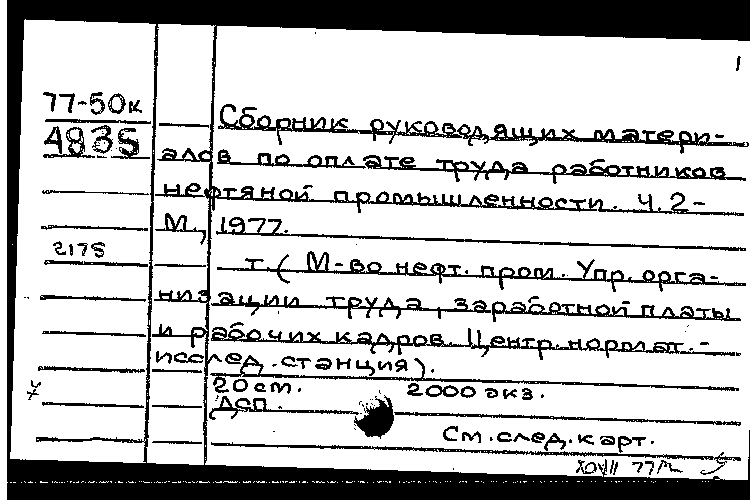 1
77-50к
4835
Сборник руководящих матери-
алов по оплате труда работников
нефтяной промышленности. Ч.2-
М., 1977.
2175
т. (М-во нефт. пром. Упр. орга-
низации труда, заработной платы
и рабочих кадров. Центр. нормат.-
исслед. станция).
20 см. 2000 экз.
ДСП.
См. след. карт.
77